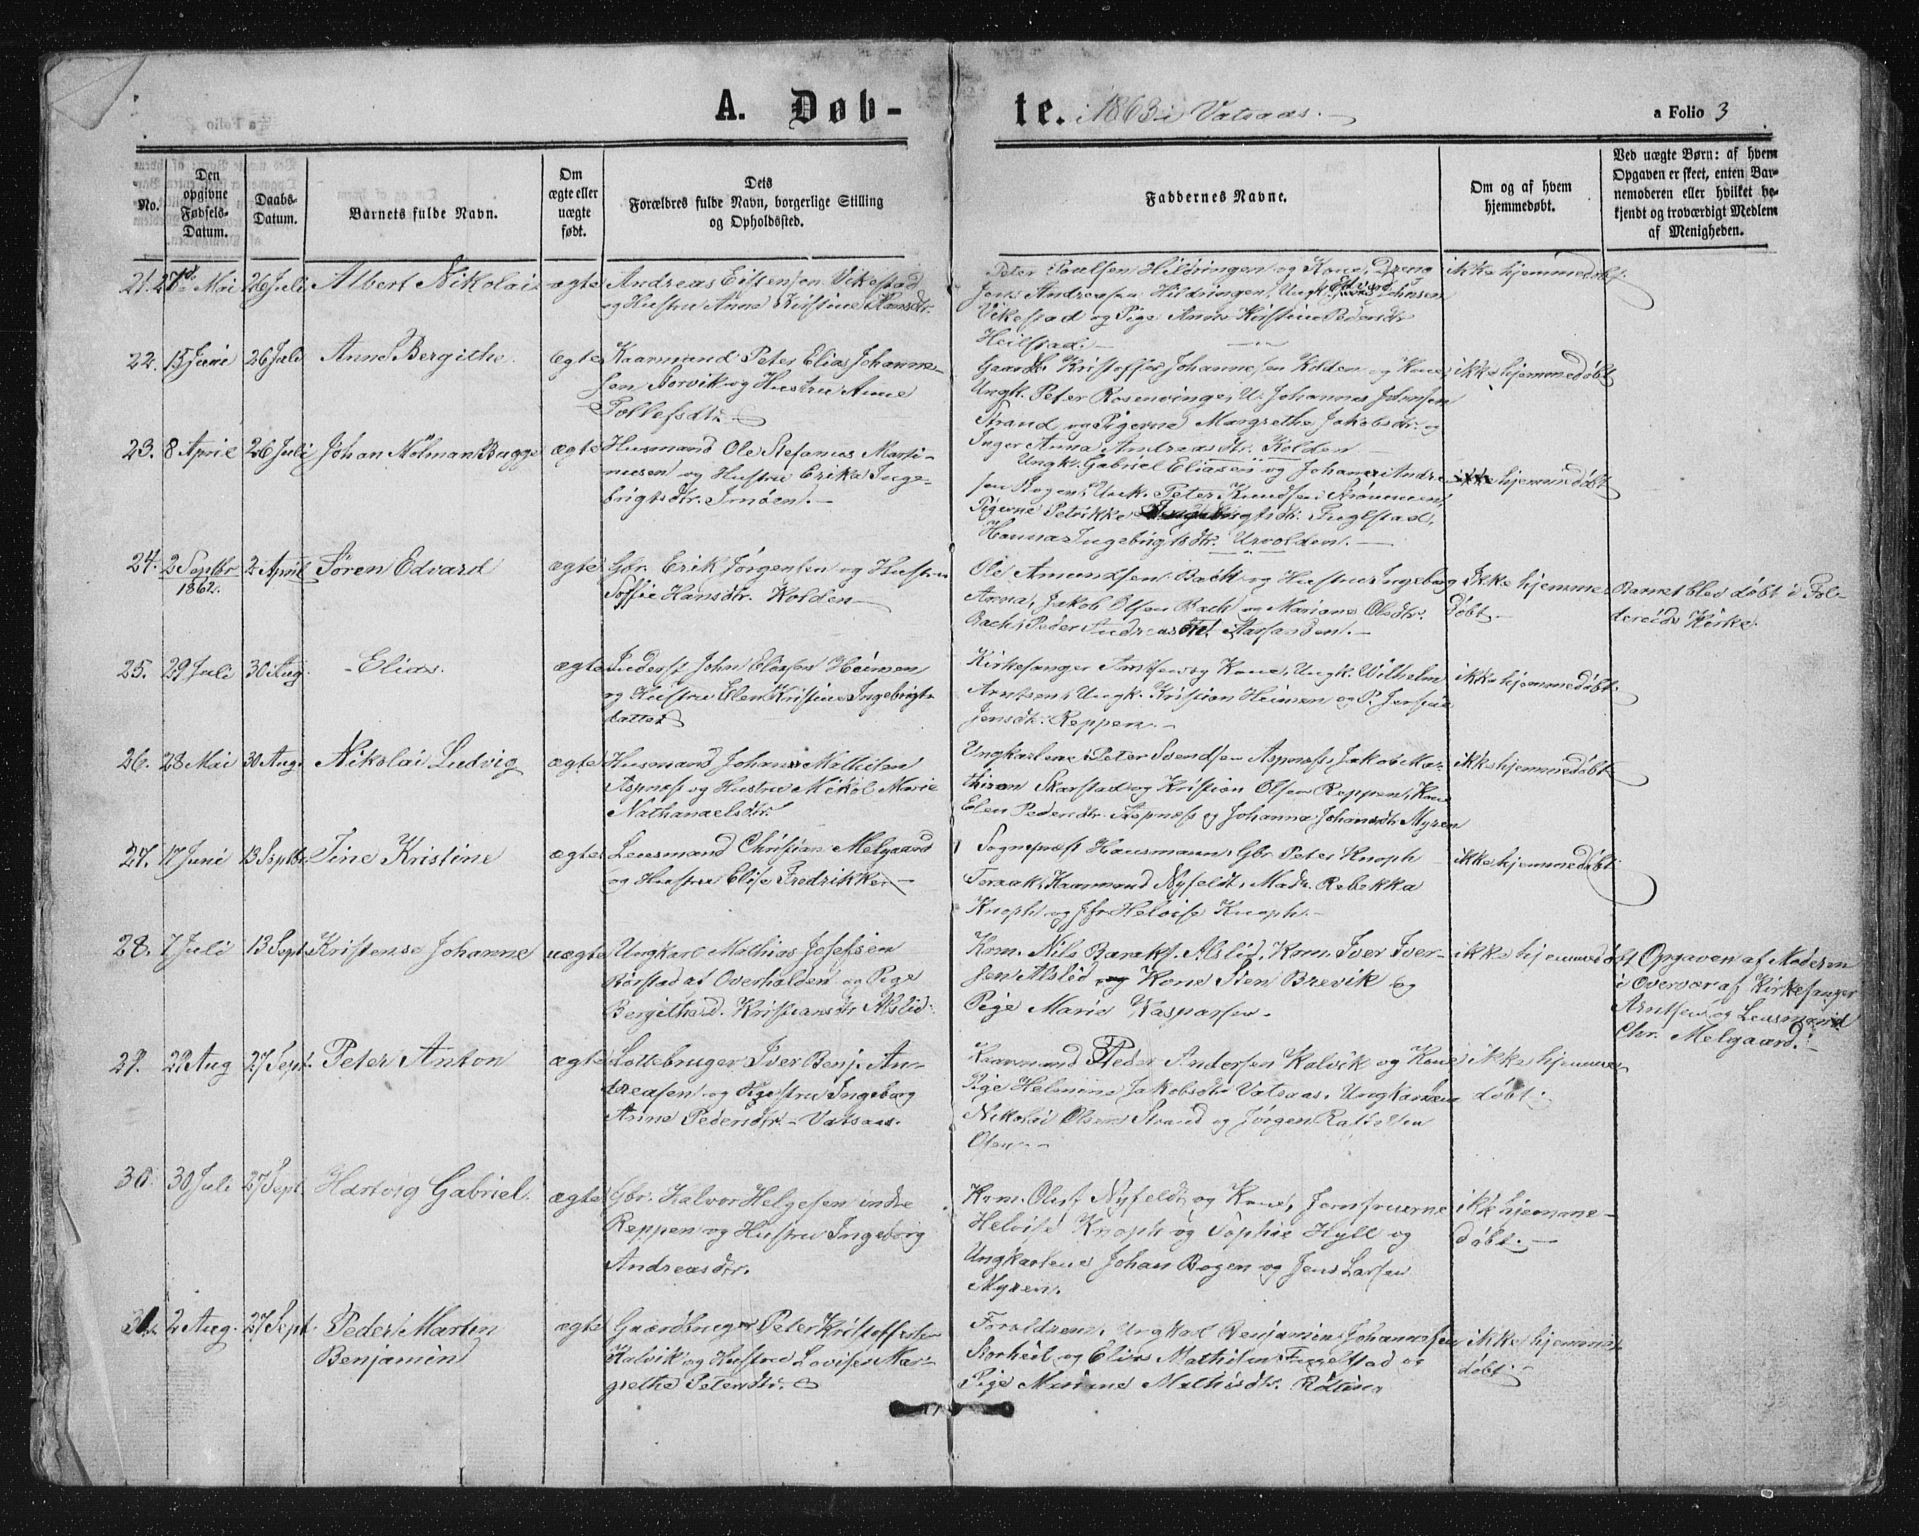 A. Døb-
te. 1863 i Vatsaas.
a Folio 3
No.
Den opgivne Fødsels-Datum.
Daabs-Datum.
Barnets fulde Navn.
Om ægte eller uægte født.
Dets
Forældres fulde Navn, borgerlige Stilling
og Opholdssted.
Faddernes Navne.
Om og af hvem
hjemmedøbt.
Ved uægte Børn: af hvem
Opgaven er skeet, enten Bar-
nemoderen eller hvilket be-
kjendt og troværdigt Medlem
af Menigheden.
21. 27d Mai 26 Juli Albert Nikolai ægte Andreas Vikestad
og Hustru Anne Kristine Hansdtr.
Peter Poulsen Hildringen og Kone, Dreng
Jens Andreasen Hildringen, Ungk. Johnsen
Vikestad og Pige Anne Kirstine Pedersdtr
Heilstad.
ikke hjemmedøbt.
22. 15 Juni 26 Juli Anne Bergithe ægte Kaarmand Peter Elias Johanne-
sen Norvik og Hustru Anne
Tollefsdtr.
Gaardb. Kristoffer Johannesen Kolden og Kone,
Ungk. Peter Rosenvinge, U. Johannes Johnsen
Strand og Pigerne Margrethe Jakobsdtr. og
Inger Anna Andreasdtr. Kolden.
ikke hjemmedøbt
23. 8 April 26 Juli Johan Nölman Bugge ægte Husmand Ole Stefanus Marti-
nusen og Hustru Erika Inge-
brigtsdtr. Imöen.
Ungk. Gabriel Eliasen og Johan Andre-
sen Bogen, Ungk. Peter Knudsen
Pigerne Petrikke Fuglstad,
Hanna Ingebrigtsdtr. Urvolden.
ikke hjemmedøbt
24. 2 Septbr 1862. 2 April Søren Edvard ægte Gbr. Erik Jörgensen og Hustru
Soffie Hansdtr. Kolden
Ole Amundsen Back og Hustru Ingeborg
Anna, Jakob Olsen Back og Mariane Olesdtr.
Back, Peder Andreas Aarsanden.
Ikke hjemme-
døbt
Barnet blev døbt i Fol-
dereids Kirke.
25. 29 Juli 30 Aug. Elias ægte Inderst John Eliasen Heimen
og Hustru Elen Kristine Ingebrigts-
datter
Kirkesanger Arntsen og Kone, Ungk. Wilhelm
Arntsen, Ungk. Kristian Heimen og P.
Jensdtr. Reppen.
ikke hjemmedøbt.
26. 28 Mai 30 Aug. Nikolai Ludvig ægte Husmand Johan Mathisen
Aspnæs og Hustru Nikol Marie
Nathanaelsdtr.
Ungkarlene Peter Svendsen Aspnæs, Jakob Ma-
thisen Skarstad og Kristian Olsen Reppen, Kone
Elen Pedersdtr. Aspnæs og Johanna Johansdtr Myren
ikke hjemmedøbt
27. 17 Juni 13 Septbr. Tine Kristine ægte Lensmand Christian Melgaard
og Hustru Elise Fredrikke
Sognepræst Hausmann, Gbr. Peter Knoph
Teraak, Kaarmand Nyfeldt, Mad. Rebekka
Knoph og Jfr Heloise Knoph.
ikke hjemmedøbt
28. 7 Juli 13 Sept. Kristense Johanne uægte Ungkarl Mathias Josefsen
Rörstad af Overhalden og Pige
Bergitha D. Kristiansdtr Alslid.
Krm. Nils Baraks. Alslid, Krm. Iver Iver-
sen Alslid og Kone Sten Brevik og
Pige Marie Kasparsen.
ikke hjemmedøbt
Opgaven af Moderen
i Overvær af Kirkesanger
Arntsen og Lensmand
Chr. Melgaard.
29. 22 Aug 27 Sept. Peter Anton ægte Lottebruger Iver Benj. An-
dreasen og Hustru Ingeborg
Anne Pedersdtr. Vatsaas.
Kaarmand Peder Andersen Kalvik og Kone
Pige Helmine Jakobsdtr Vatsaas, Ungkarlene
Nikolai Olsen Strand og Jörgen
Olsen
ikke hjemme-
døbt.
30. 30 Juli 27 Sept. Hartvig Gabriel. ægte Gbr. Halvor Helgesen indre
Reppen og Hustru Ingeborg
Andreasdtr.
Krm. Oluf Nyfeldt og Kone, Jomfruerne
Heloise Knoph og Sophie Hyll og
Ungkarlene Johan Bogen og Jens Larsen
Myren.
ikke hjemme-
døbt.
31. 2 Aug. 27 Sept. Peder Martin
Benjamin
ægte Gaardbruger Peter Kristoffersen
Kalvik og Hustru Lovise Mar-
grethe Petersdtr.
Forældrene, Ungkarl Benjamin Johannesen
Storheil og Elias Mathisen Fuglstad og
Pige Mariane Mathisdtr.
ikke hjemme-
døbt